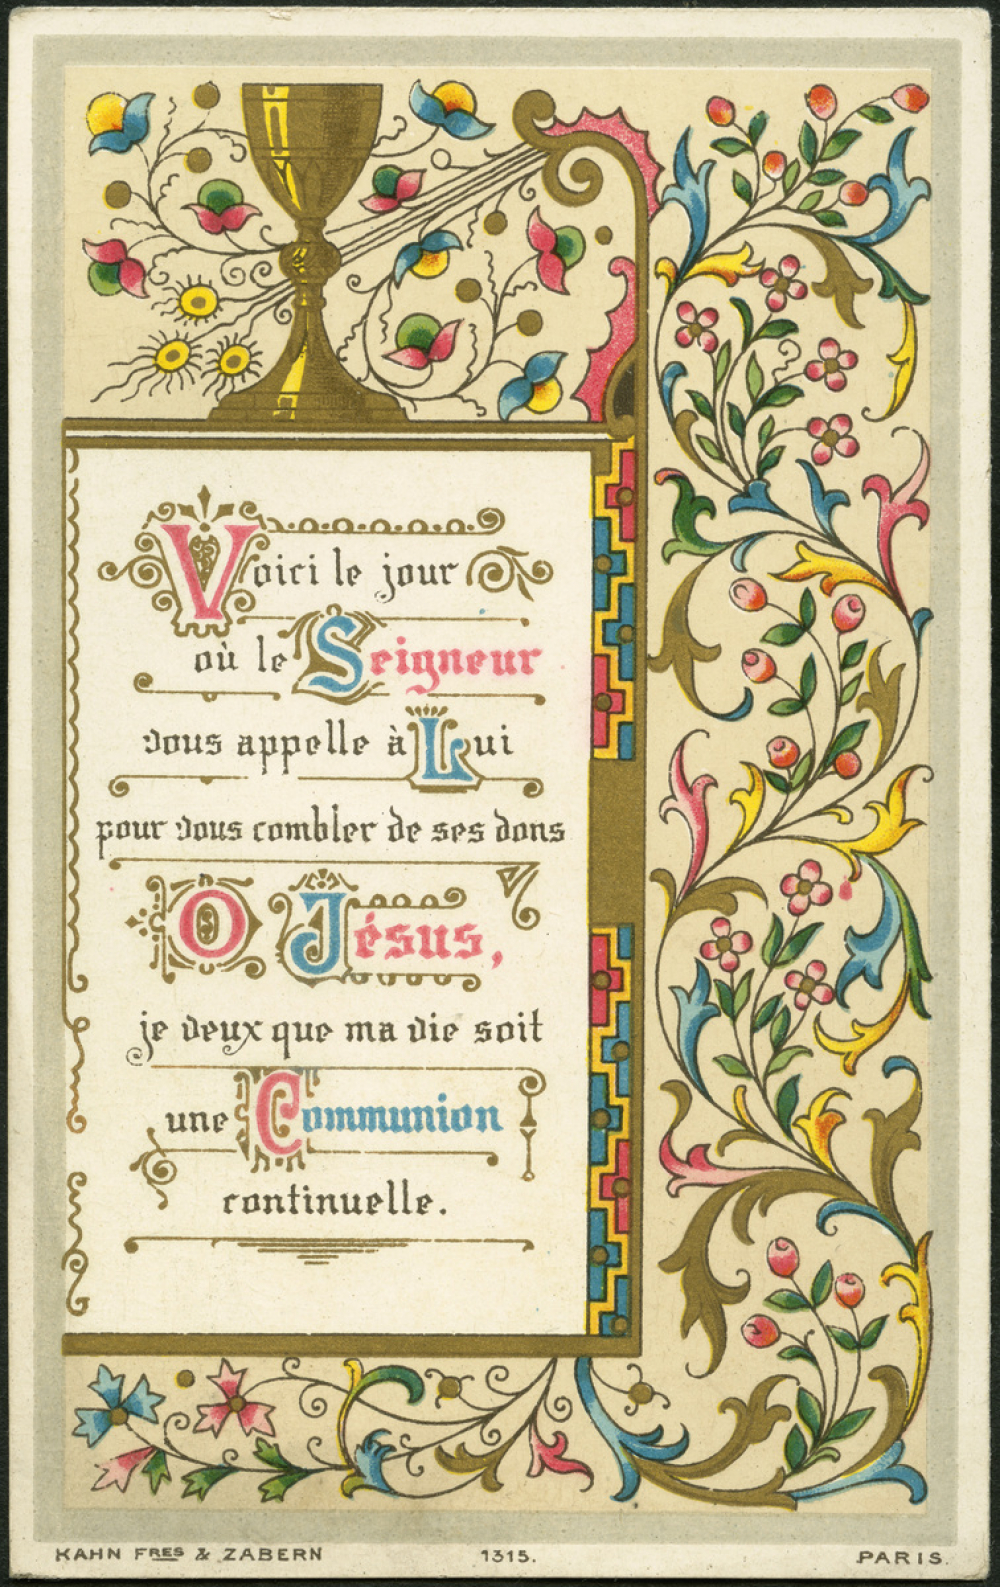 Voici le jour
où le Seigneur
vous appelle à Lui
pour vous combler de ses dons
O Jésus,
je veux que ma vie soit
une Communion
continuelle.
KAHN FRES & ZABERN 1315. PARIS.